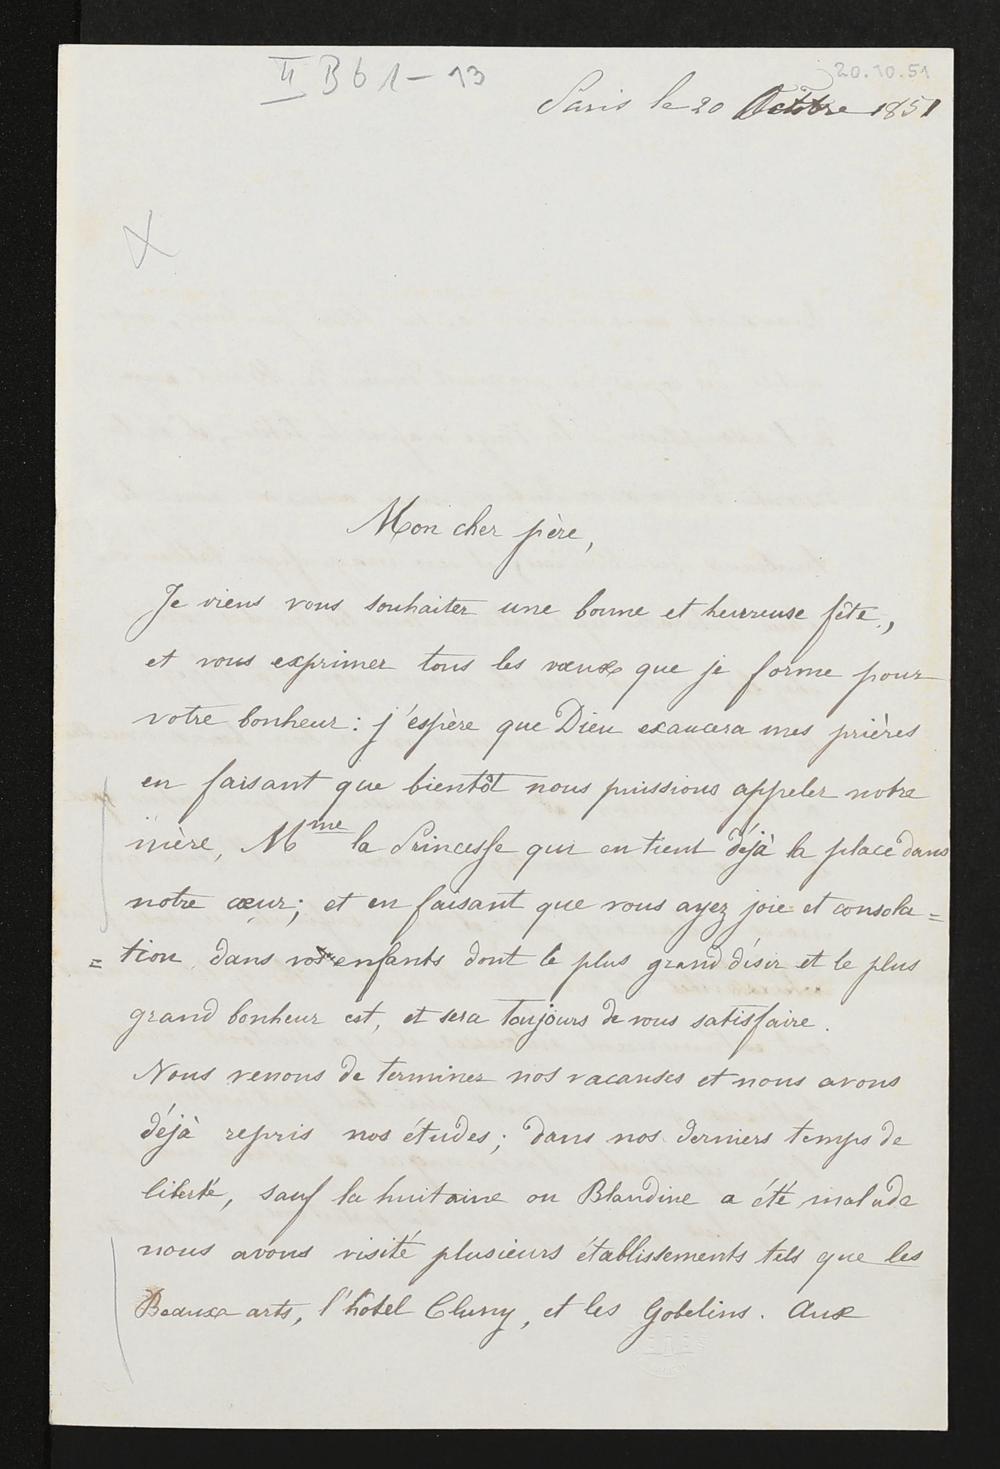 II B b 1 - 13
20.10.51
Paris le 20 Octobre 1851
Mon cher père,
Je viens vous souhaiter une bonne et heureuse fête,
et vous exprimer tous les vœux que je forme pour
votre bonheur : j'espère que Dieu exaucera mes prières
en faisant que bientôt nous puissions appeler notre
mère, Mme la Princesse qui en tient déjà la place dans
notre cœur ; et en faisant que vous ayez joie et consola=
=tion dans vos enfants dont le plus grand désir et le plus
grand bonheur est, et sera toujours de vous satisfaire.
Nous venons de terminer nos vacanses et nous avons
déjà repris nos études ; dans nos derniers temps de
liberté, sauf la huitaine ou Blandine a été malade
nous avons visité plusieurs établissements tels que les
Beaux arts, l'hotel Cluny, et les Gobelins. Aux